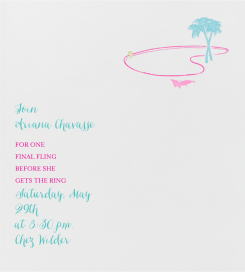 Join
Ariana Chavasse
FOR ONE
FINAL FLING
BEFORE SHE
GETS THE RING
Saturday, May
29th
at 8:30 pm.
Chez Wilder